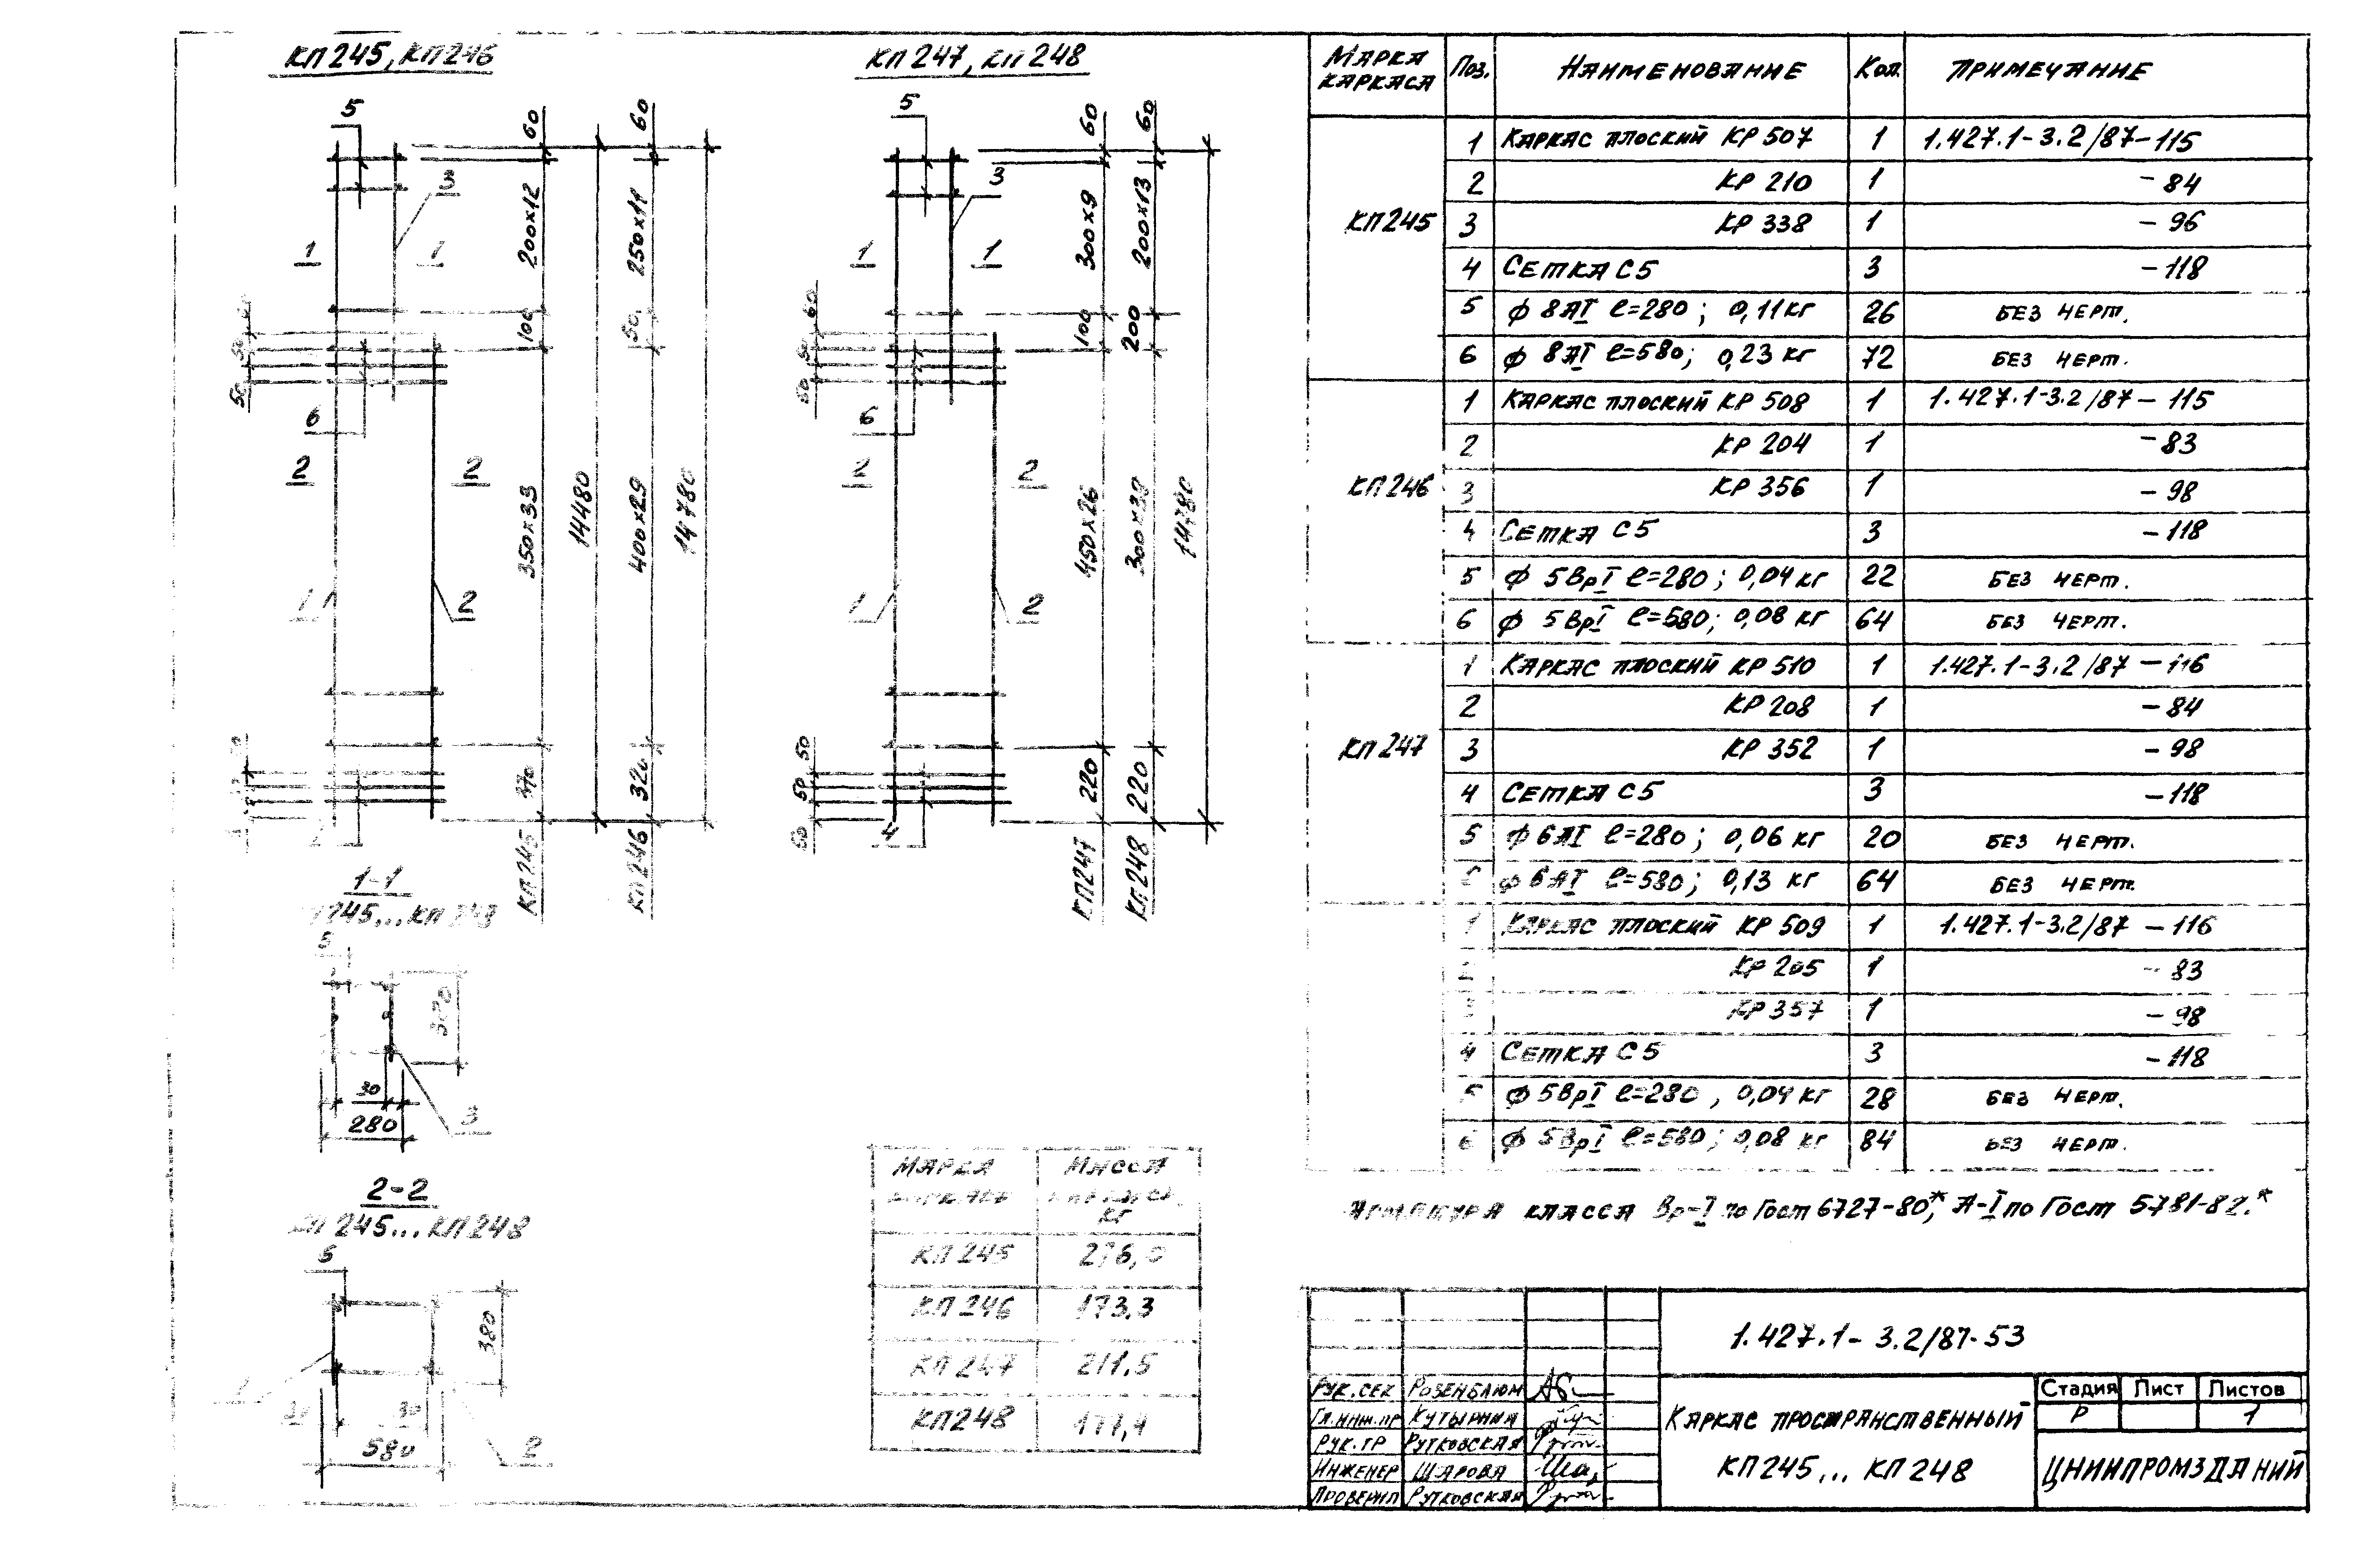 КП245, КП246
5
3
1
1
6
2
2
1
2
50
50
60
200х12
100
350х33
370
КП245
14480
60
250х11
50
400х29
320
КП246
14780
КП247, КП248
5
3
1
1
6
2
2
1
2
4
60
50
50
50
50
50
60
300х9
100
450х26
220
КП247
60
200х13
200
220
КП248
14780
1-1
5
370
30
280
3
2-2
КП245...КП248
5
380
30
580
2
Марка
Масса
кг
КП245
КП246 173.3
КП247 211.5
КП248 177,4
Марка каркаса Поз. Наименование Кол. Примечание
КП245
1 Каркас плоский КР 507 1 1.427.1-3.2/87-115
2 КР 210 1 -84
3 КР 338 1 -96
4 Сетка С5 3 -118
5 ϕ 8АI ℓ=280; 0,11кг 26 без черт.
6 ϕ 8АI ℓ=580; 0,23 кг 72 без черт.
КП246
1 Каркас плоский КР 508 1 1.427.1-3.2/87-115
2 КР 204 1 -83
3 КР 356 1 -98
4 Сетка С5 3 -118
5 ϕ 5ВрI ℓ=280; 0,04 кг 22 без черт.
6 ϕ 5ВрI ℓ=580; 0,08 кг 64 без черт.
КП247
1 Каркас плоский КР 510 1 1.427.1-3.2/87-116
2 КР 208 1 -84
3 КР 352 1 -98
4 Сетка С5 3 -118
5 ϕ 6АI ℓ=280; 0,06 кг 20 без черт.
ϕ 6АI ℓ=580; 0,13 кг 64 без черт.
1 Каркас плоский КР 509 1 1.427.1-3.2/87-116
2 КР 205 1 -83
3 КР 357 1 -98
4 Сетка С5 3 -118
5 ϕ 5ВрI ℓ=280, 0,04 кг 28 без черт.
6 ϕ 5ВрI ℓ=580; 0,08 кг 84 без черт.
Арматура класса Вр-I по Гост 6727-80*, А-I по Гост 5781-82.*
1.427.1-3.2/87-53
Рук.сек Розенблюм
Гл.инж.пр Кутырина
Рук.гр Рутковская
Инженер Шарова
Проверил Рутковская
Каркас пространственный
КП245... КП248
Стадия Лист Листов
Р 1
ЦНИИПРОМЗДАНИЙ